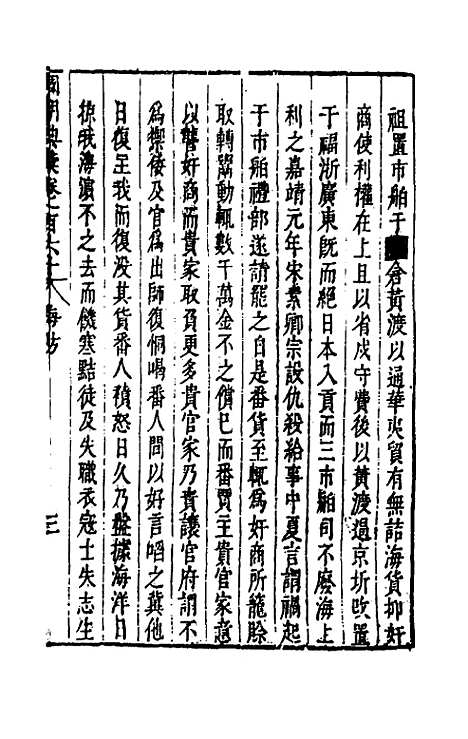 祖置市舶于倉黃渡以通華夷貿有無詰海貨抑奸
商使利權在上且以省戍守費後以黃渡過京圻改置
于福浙廣東旣而絕日本入貢而三市舶司不廢海上
利之嘉靖元年宋素卿宗設仇殺給事中夏言謂禍起
于市舶禮部遂請罷之自是番貨至輒爲奸商所籠賒
取轉鬻動輒數千萬金不之償已而番賈主貴官家意
以讋奸商而貴家取負更多貴官家乃責讓官府謂不
爲禦倭及官爲出師復恫喝番人問以好言啗之冀他
日復至我而復没其貨番人積怒日久乃盤據海洋日
掠我海濵不之去而饑寒黠徒及失職衣冠士失志生
國朝典彙卷之百六十八 海防 三